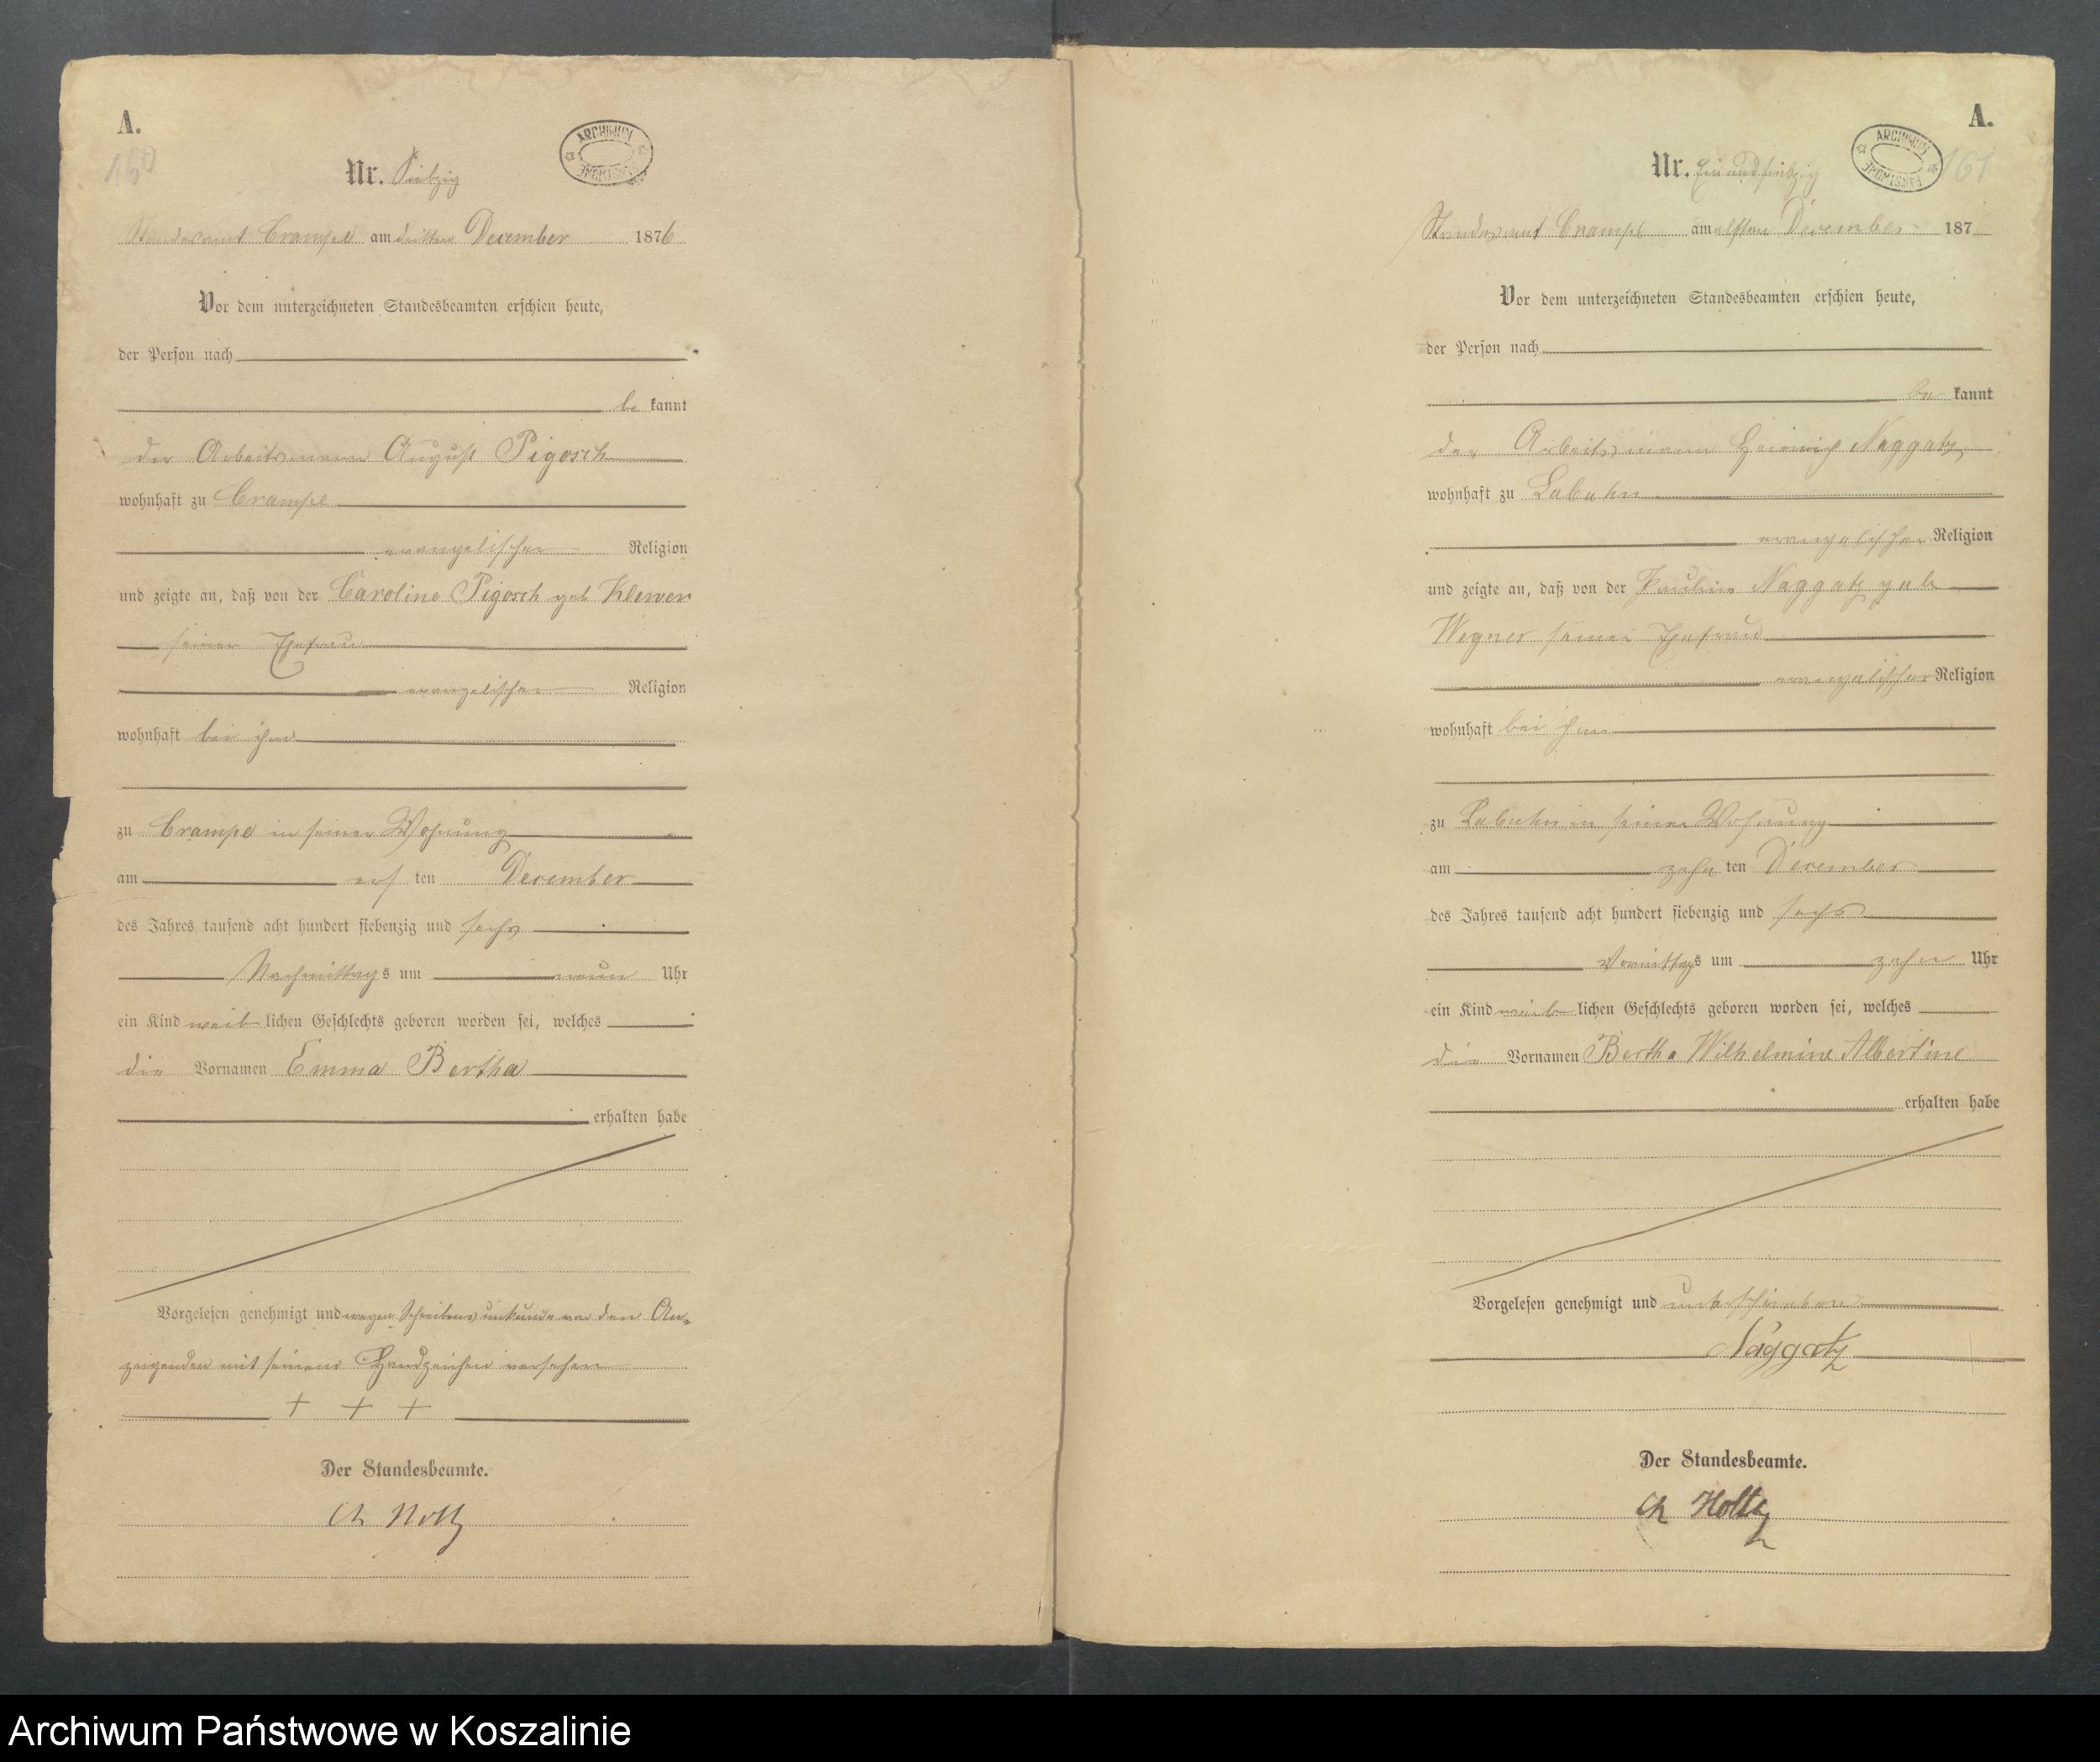 A.
160
ARCHIWUM
PAŃSTWOWE
Nr. Siebzig
Standesamt Crampe am dritten December 1876
Vor dem unterzeichneten Standesbeamten erschien heute,
der Person nach
be kannt
der Arbeitsmann August Pigorsch
wohnhaft zu Crampe
evangelischer Religion
und zeigte an, daß von der Caroline Pigorsch geb
seiner Ehefrau
evangelischer Religion
wohnhaft bei ihm
zu Crampe in seiner Wohnung
am ers ten December
des Jahres tausend acht hundert siebenzig und sechs
Nachmittags um neun Uhr
ein Kind weib lichen Geschlechts geboren worden sei, welches
die Vornamen Emma Bertha
erhalten habe
Vorgelesen genehmigt und wegen Schreibensunkunde von dem An-
zeigenden mit seinem Handzeichen versehen
+ + +
Der Standesbeamte.
Ch Holtz
A.
161
ARCHIWUM
PAŃSTWOWE
Nr. Ein und siebzig
Standesamt Crampe am elften December 187
Vor dem unterzeichneten Standesbeamten erschien heute,
der Person nach
be kannt
der Arbeitsmann Heinrich Naggatz
wohnhaft zu Labuhn
evangelischer Religion
und zeigte an, daß von der Pauline Naggatz geb
Wegner seiner Ehefrau
evangelischer Religion
wohnhaft bei ihm
zu Labuhn in seiner Wohnung
am zehn ten December
des Jahres tausend acht hundert siebenzig und sechs
Vormittags um zehn Uhr
ein Kind weib lichen Geschlechts geboren worden sei, welches
die Vornamen Bertha Wilhelmine Albertine
erhalten habe
Vorgelesen genehmigt und unterschrieben
Naggatz
Der Standesbeamte.
Ch Holtz
Archiwum Państwowe w Koszalinie